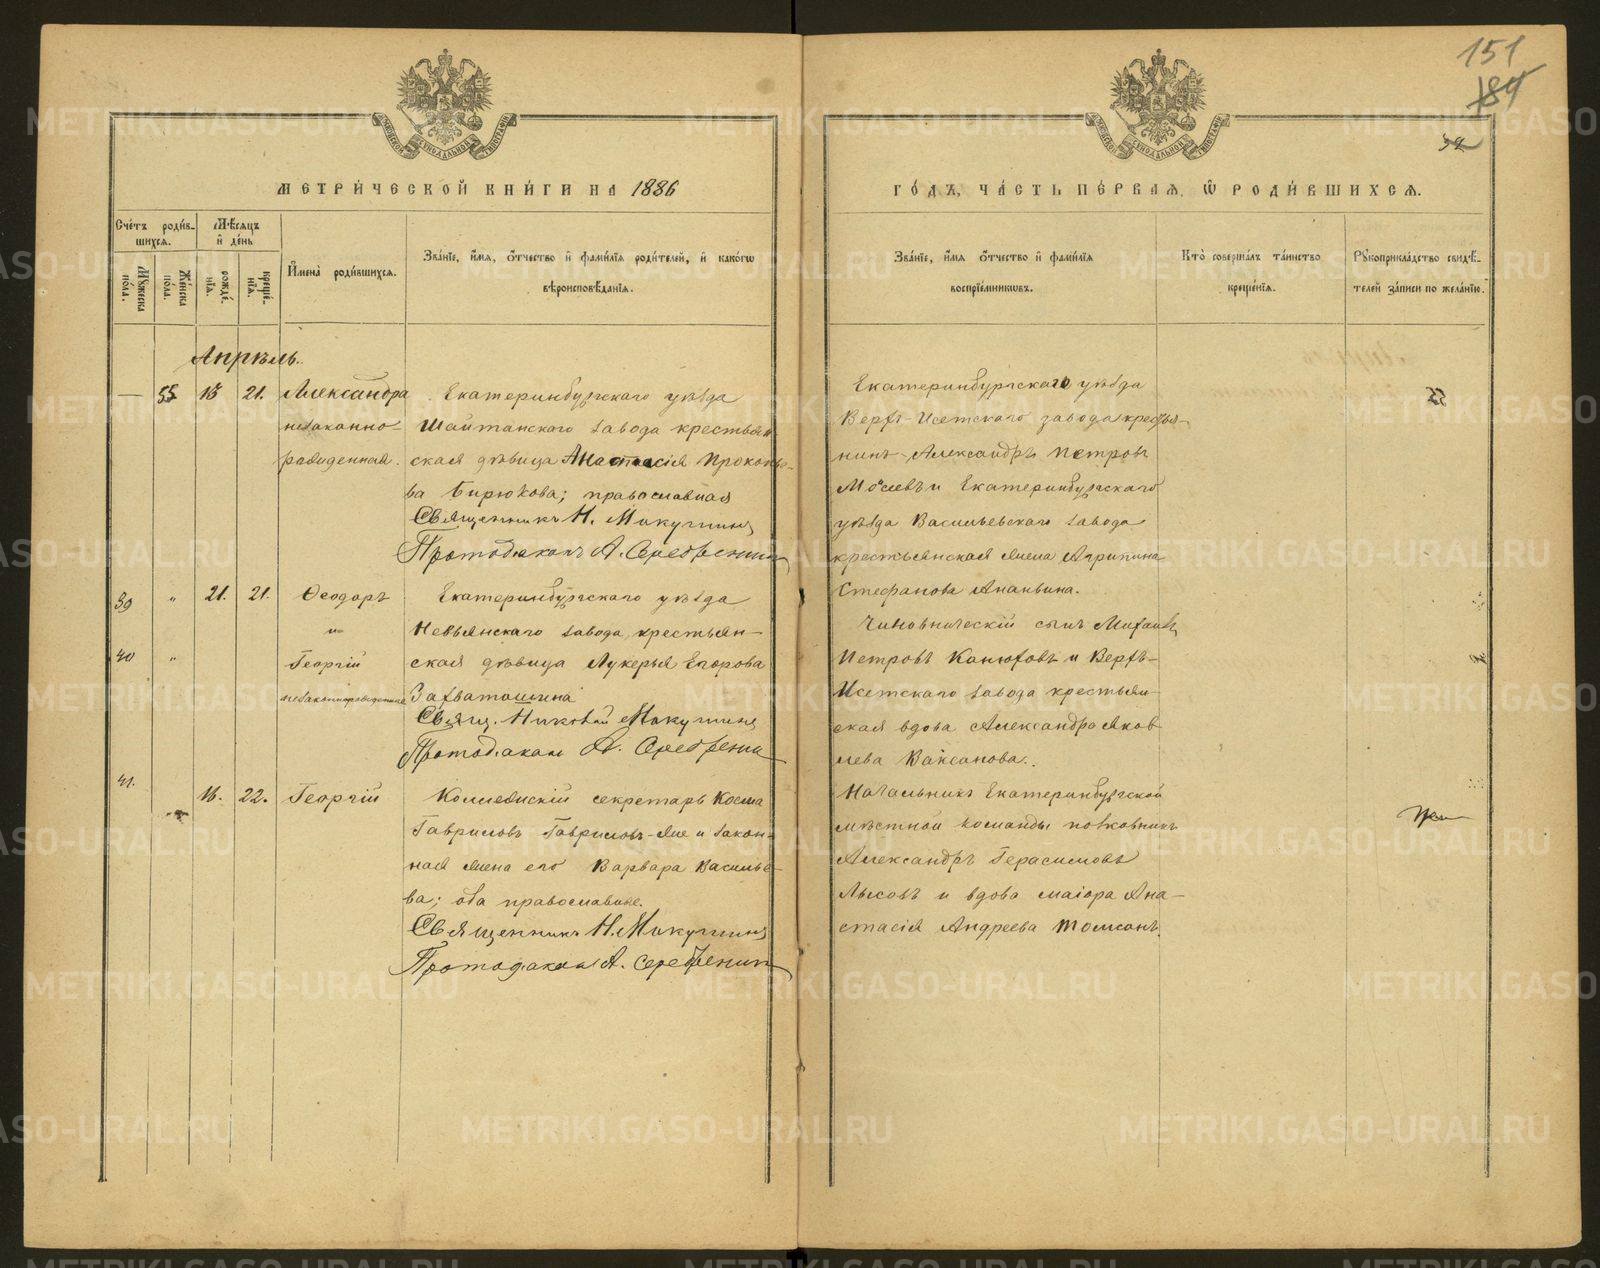 151
184
34
МЕТРИЧЕСКОЙ КНИГИ НА 1886
Счетъ родившихся.
Мѣсяцъ и день
Мужеска пола.
Женска пола.
рожденія.
крещенія.
Имена родившихся.
Званіе, имя, отчество и фамилія родителей, и какого
вѣроисповѣданія.
Апрѣль.
— 55 21. Александра
незаконно-
рожденная.
Екатеринбургскаго уѣзда
Шайтанскаго завода крестьян
ская дѣвица Анастасія Прокопь-
ва Бирюкова; православная
Священникъ Н. Макушинъ
Протодіаконъ А. Серебренни
39 " 21. 21. Ѳеодоръ
и
40 " Георгій
незаконнорожденные
Екатеринбургскаго уѣзда
Невьянскаго завода, крестьян-
ская дѣвица Лукерья Егорова
Захватошина
Свящ. Николай Макушинъ
Протодіакон А. Серебренни
41. " 16. 22. Георгій
Коллежскій секретарь Косма
Гавриловъ Гавриловъ-Яне и закон-
ная жена его Варвара Василье-
ва; оба православные.
Священникъ Н. Макушинъ
Протодіакон А. Серебренни
ГОДЪ, ЧАСТЬ ПЕРВАЯ, Ѡ РОДИВШИХСЯ.
Званіе, имя отчество и фамилія
воспріемниковъ.
Кто совершалъ таинство
крещенія.
Рукоприкладство свидѣ-
телей записи по желанію.
Екатеринбургскаго уѣзда
Верхъ-Исетскаго завода крестья-
нинъ Александръ Петровъ
Мосѣевъ и Екатеринбургскаго
уѣзда Васильевскаго завода
крестьянская жена Агрипина
Стефанова Ананьина.
Чиновническій сынъ Михаилъ
Петровъ Канюковъ и Верхъ-
Исетскаго завода крестьян-
ская вдова Александра Яков
лева Ваксанова.
Начальникъ Екатеринбургской
мѣстной команды полковникъ
Александръ Герасимовъ
Лысовъ и вдова маіора Ана-
стасія Андреева Томсонъ.
METRIKI.GASO-URAL.RU